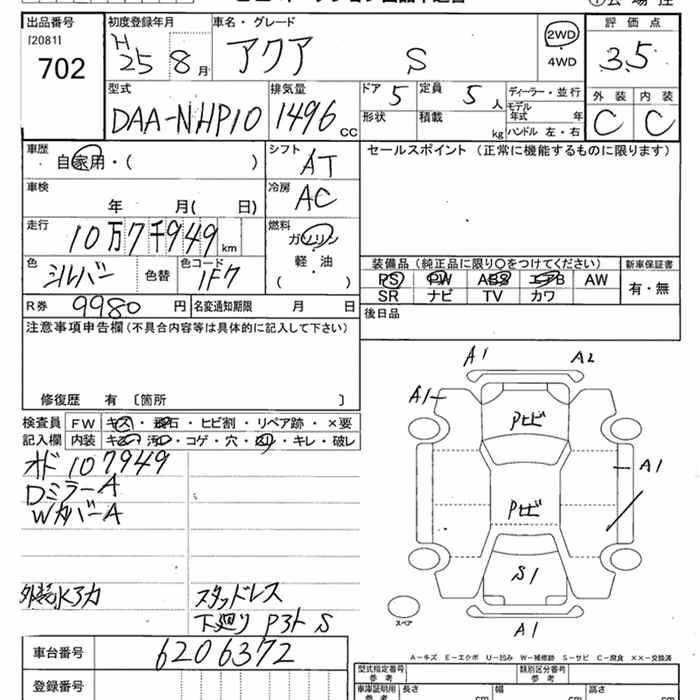 出品番号 初度登録年月 車名・グレード 評価点
[2081] H 25 8月 アクア S 2WD 3.5
702 4WD
型式 排気量 ドア 5 定員 5人 ディーラー・並行 外装 内装
DAA-NHP10 1496CC モデル年式 年 C C
形状 積載 kg ハンドル 左・右
車歴 シフト セールスポイント (正常に機能するものに限ります)
自家用・( ) AT
車検 冷房
年 月( 日) AC
走行 燃料
10万7千949km ガソリン
色 色コード 軽・油 装備品 (純正品に限り○をつけてください) 新車保証書
シルバー 色替 1F7 ( ) PS PW ABS エアB AW 有・無
SR ナビ TV カワ
R券 9980円 名変通知期限 月 日 後日品
注意事項申告欄(不具合内容等は具体的に記入して下さい)
A1 A2
修復歴 有 〔箇所 〕 A1
検査員 FW キズ・飛石・ヒビ割・リペア跡・×要 Pヒビ
記入欄 内装 キズ・汚れ・コゲ・穴・ソリ・キレ・破レ
オド107949 A1
DミラーA
WカバーA Pヒビ
S1
外装水アカ スタッドレス
下廻り Pヨト S スペア
A1
車台番号 6206372 A-キズ E-エクボ U-凹み W-補修跡 S-サビ C-腐食 ××-交換済
型式指定番号 類別区分番号
参考 参考
登録番号 車庫証明用 長さ 幅 高さ
参考 cm cm cm